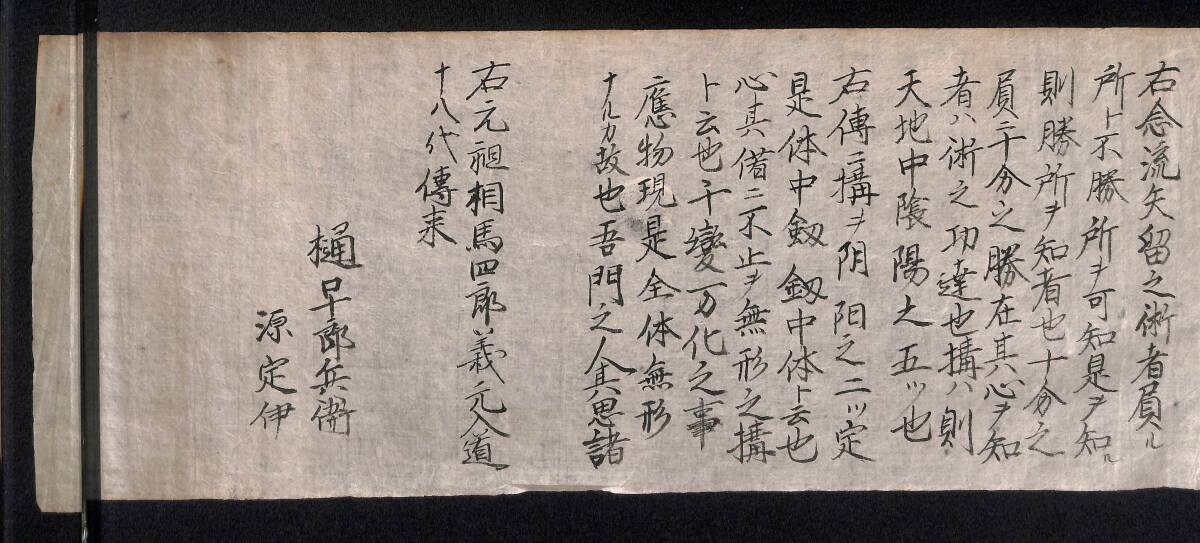 右念流矢留之術者負ル
所ト不勝所ヲ可知是ヲ知ル
則勝所ヲ知者也十分之
負ニ十分之勝在其心ヲ知
者ハ術之功達也搆ハ則
天地中陰陽之五ツ也
右傳ニ搆ヲ阴阳之二ツ定
是体中劔劔中体ト云也
心其借ニ不止ヲ無形之搆
ト云也千變万化之事
應物現是全体無形
ナルカ故也吾門之人其思諸
右元祖相馬四郎義元入道
十八代傳来
樋口十郎兵衞
源定伊